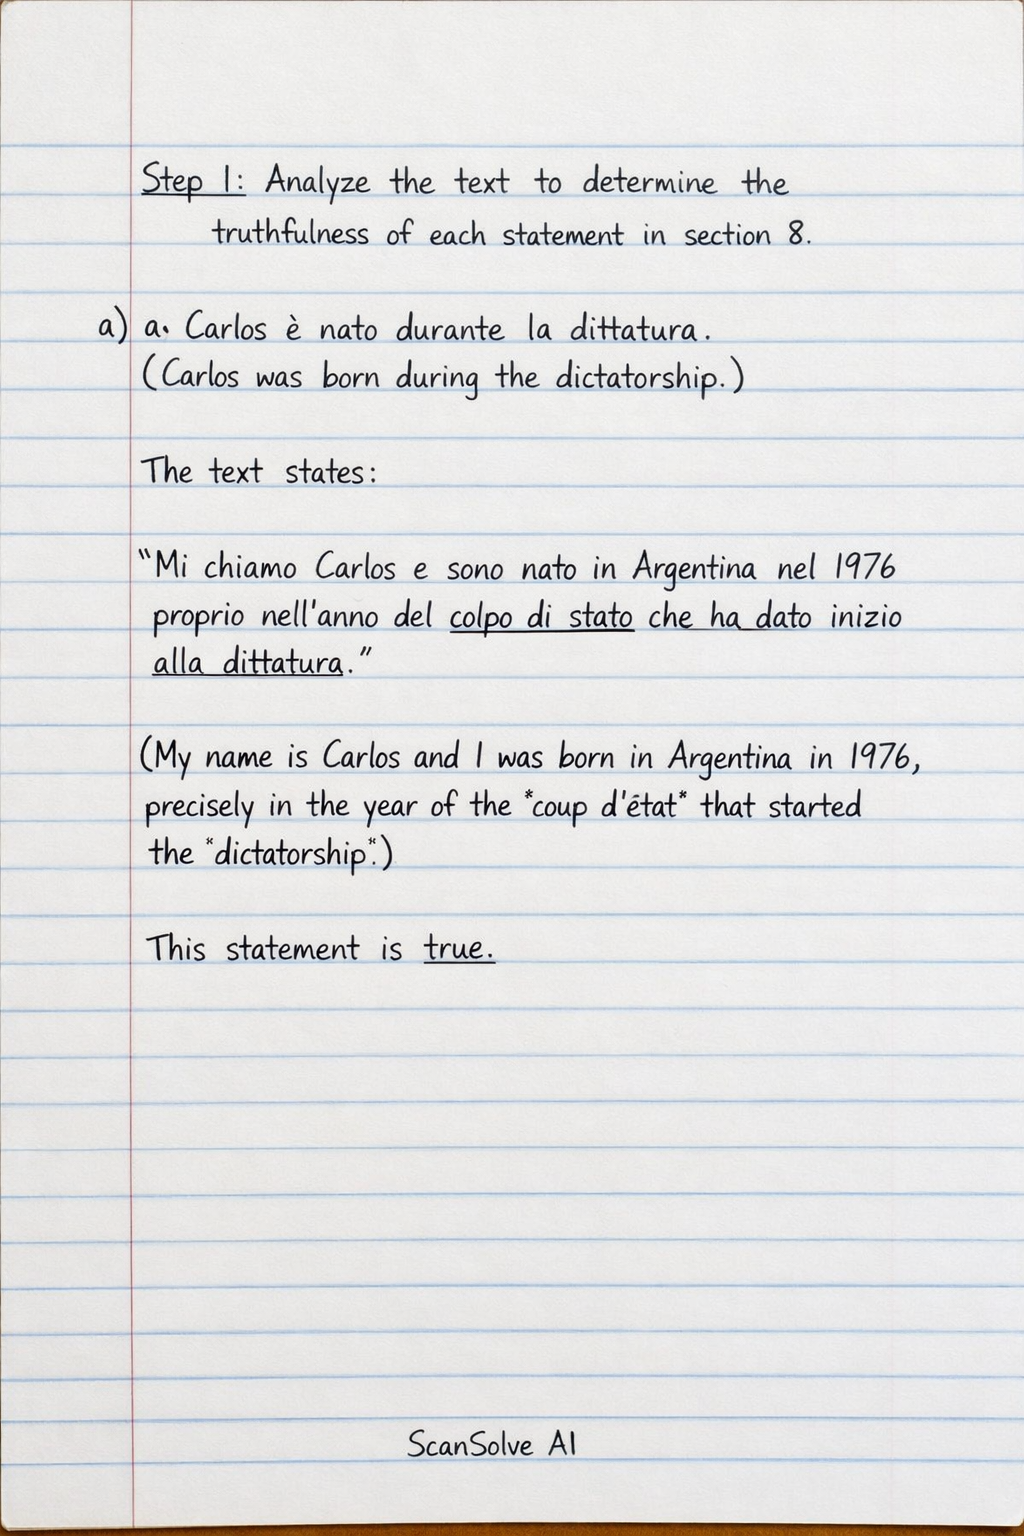 Step 1: Analyze the text to determine the
truthfulness of each statement in section 8.
a) a. Carlos è nato durante la dittatura.
(Carlos was born during the dictatorship.)
The text states:
"Mi chiamo Carlos e sono nato in Argentina nel 1976
proprio nell'anno del colpo di stato che ha dato inizio
alla dittatura."
(My name is Carlos and I was born in Argentina in 1976,
precisely in the year of the *coup d'état* that started
the *dictatorship*.)
This statement is true.
ScanSolve AI